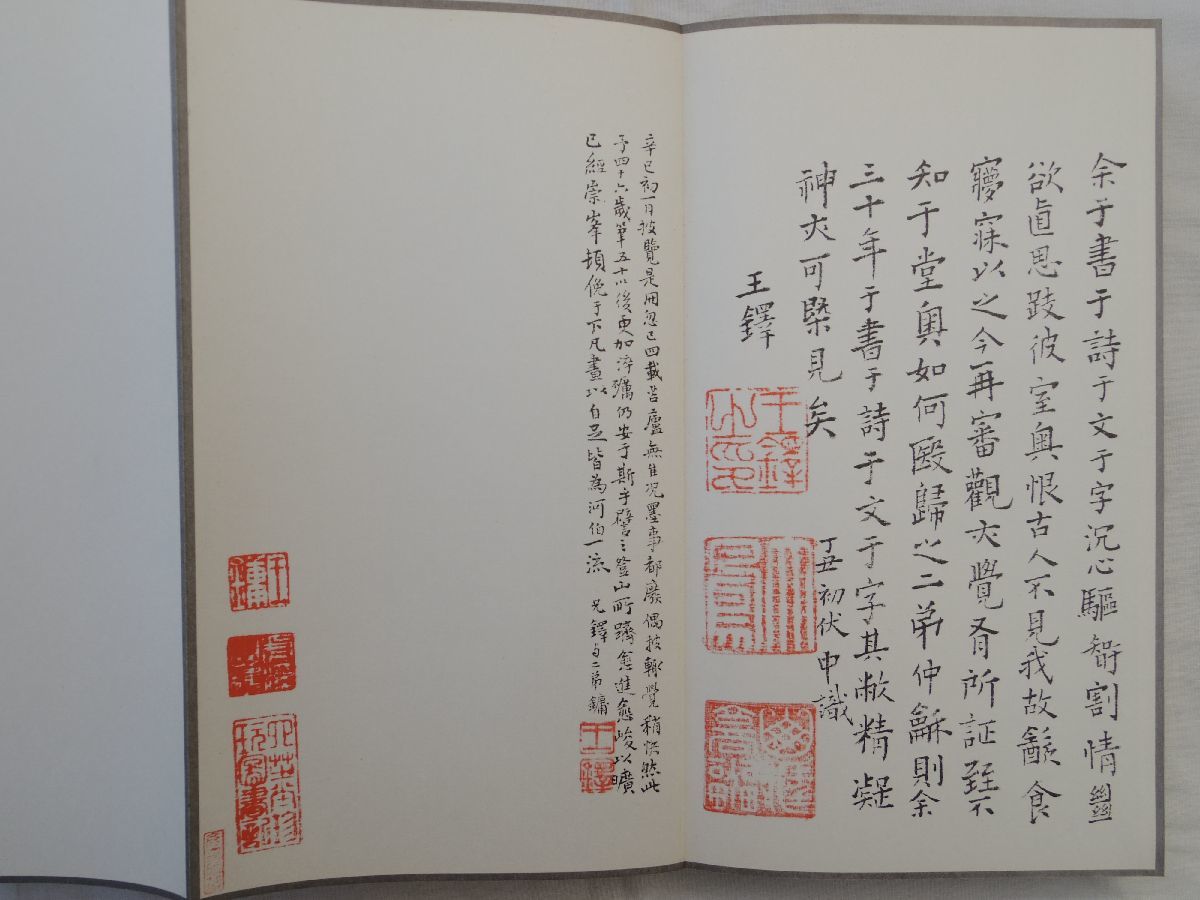 余于書于詩于文于字沉心驅智割情幽
欲直思跂彼室奥恨古人不見我故飲食
寱寐以之今再審觀大覺有所証臸不
知于堂奧如何殹歸之二弟仲龢則余
三十年于書于詩于文于字其敝精凝
神大可槩見矣
丁丑初伏中識
王鐸
辛巳初一日披覽是冊忽已四載苫廬無隹況墨事都廢偶披輒覺稍快然此
予四十六歲筆五十以後更加淬礪仍安于斯乎譬之登山所躋愈進愈峻以曠
已經崇峯頓俛于下凡畫以自足皆為河伯一流 兄鐸与二弟鏞